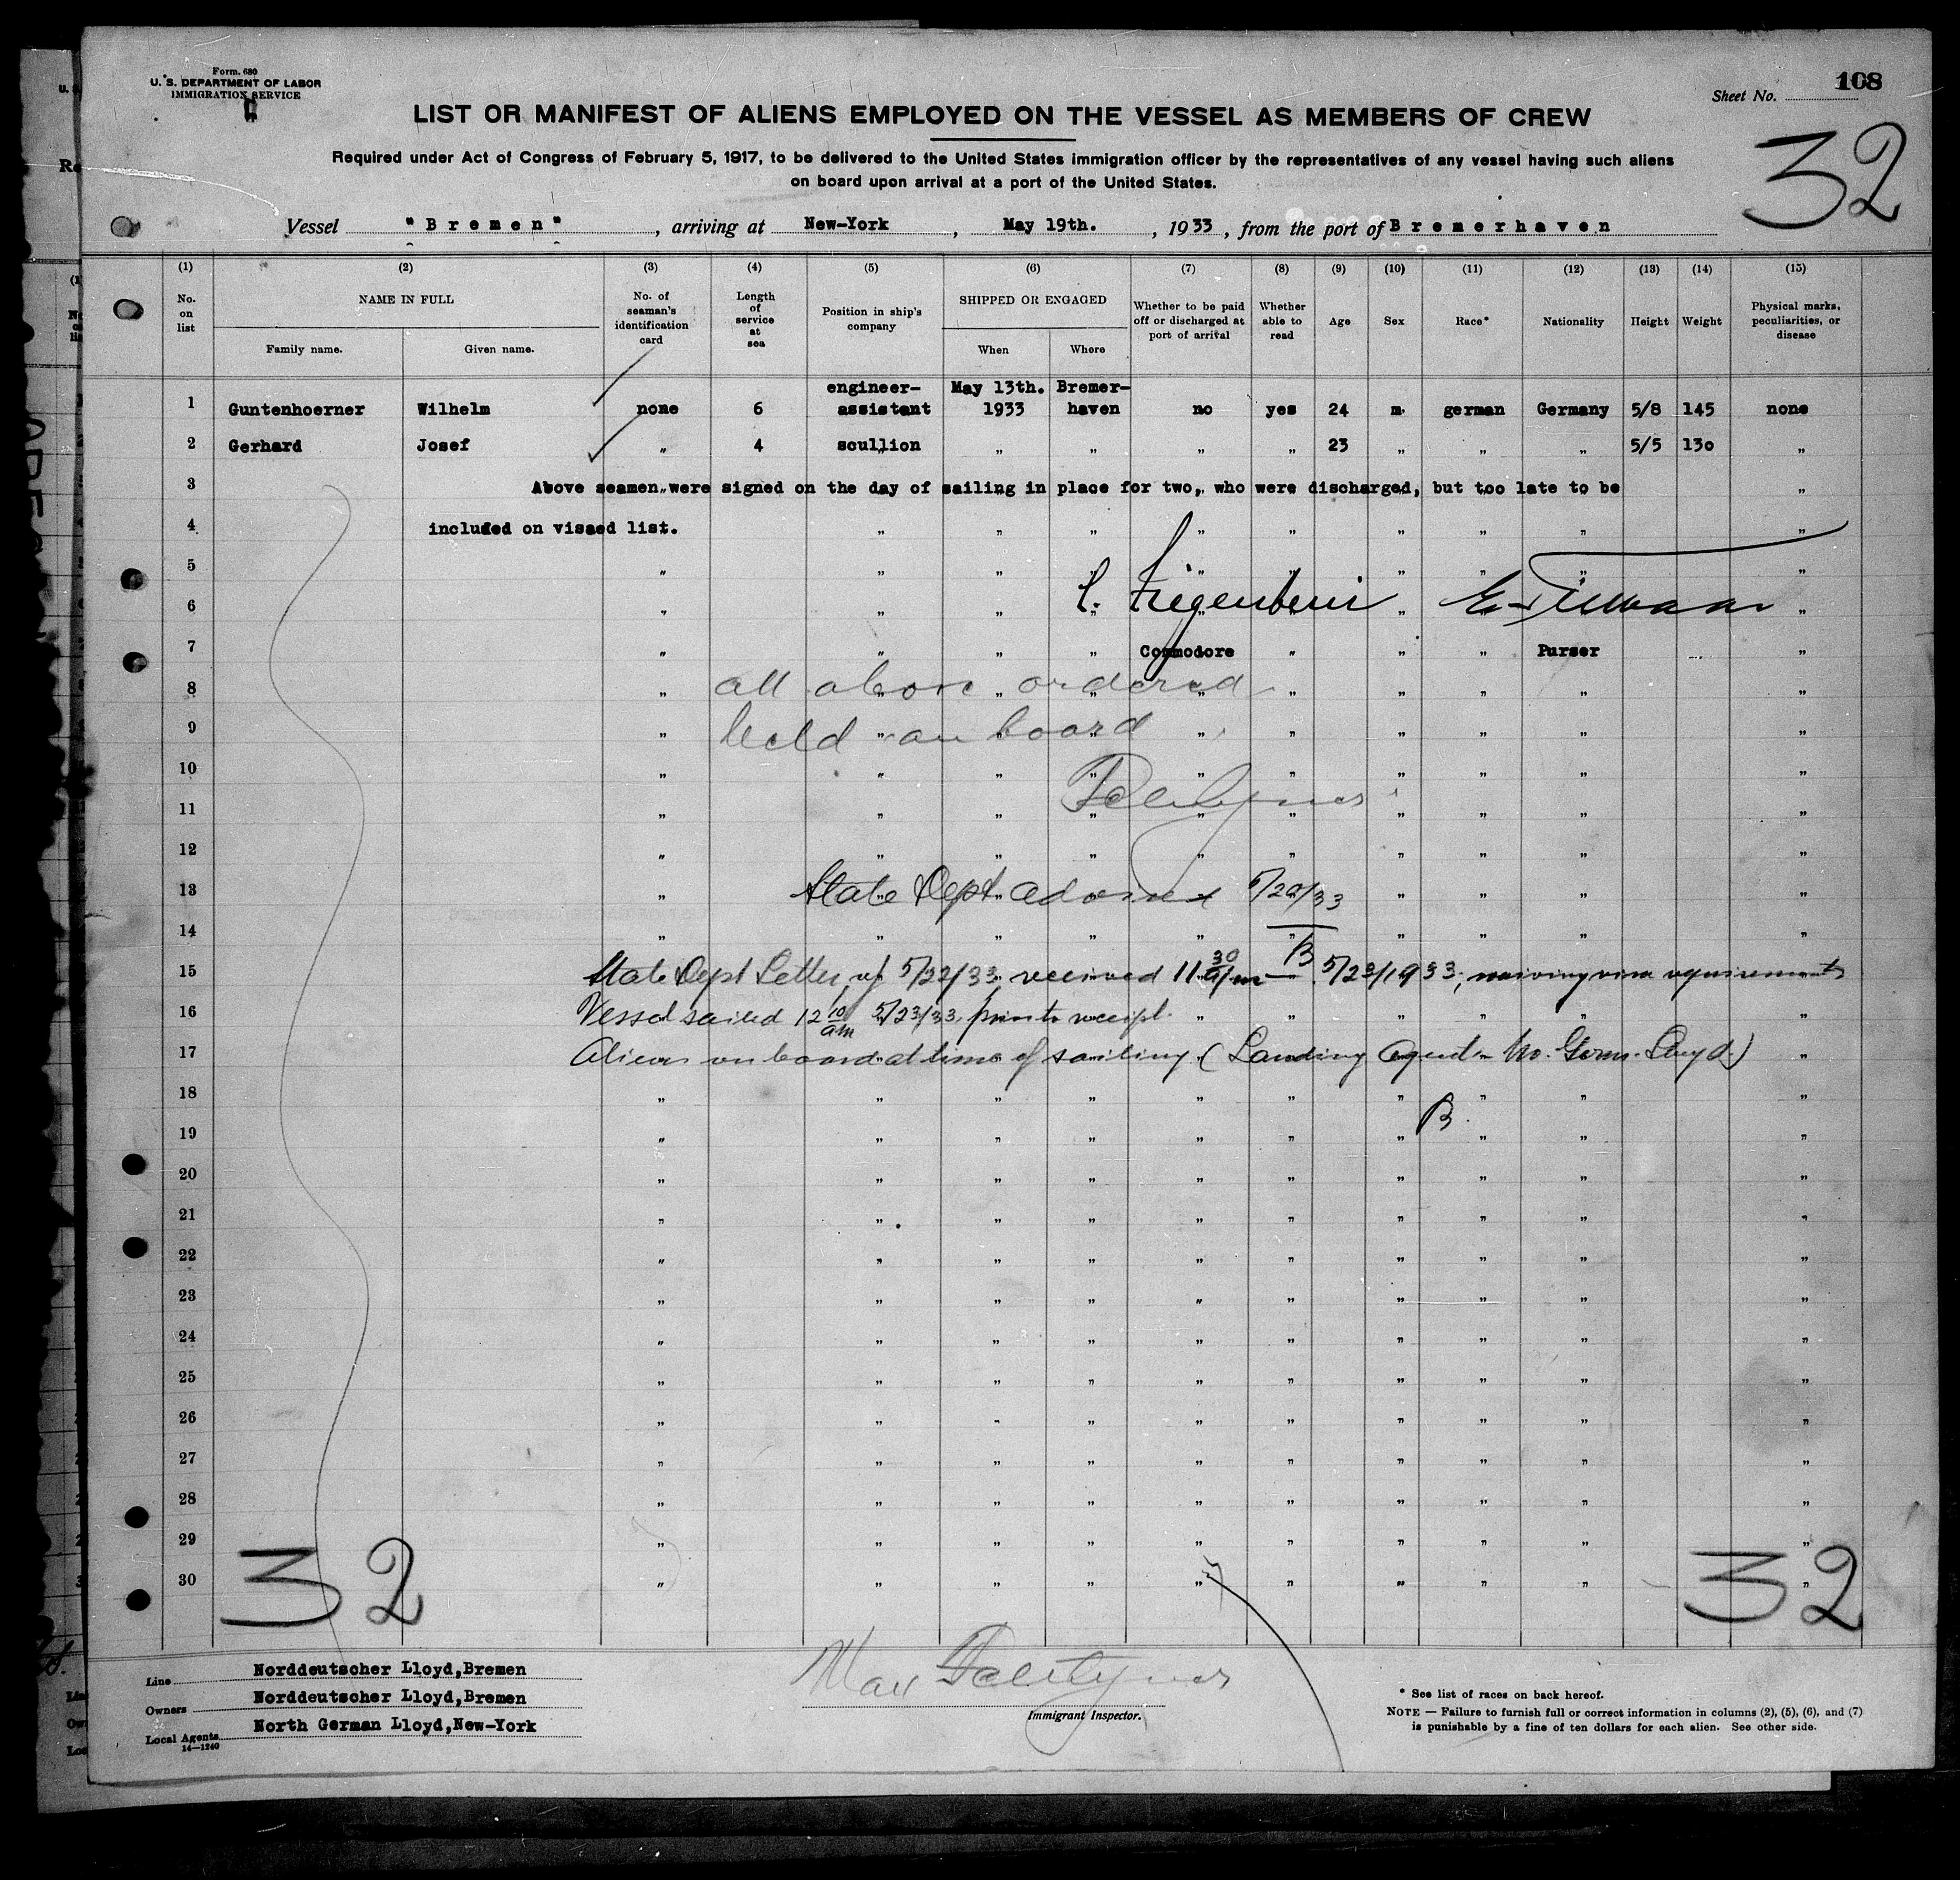 Form. 680
U. S. DEPARTMENT OF LABOR
IMMIGRATION SERVICE
Sheet No. 108
32
LIST OR MANIFEST OF ALIENS EMPLOYED ON THE VESSEL AS MEMBERS OF CREW
Required under Act of Congress of February 5, 1917, to be delivered to the United States immigration officer by the representatives of any vessel having such aliens
on board upon arrival at a port of the United States.
Vessel "Bremen", arriving at New-York, May 19th., 1933, from the port of Bremerhaven
(1) (2) (3) (4) (5) (6) (7) (8) (9) (10) (11) (12) (13) (14) (15)
No. on list NAME IN FULL Family name. Given name. No. of seaman's identification card Length of service at sea Position in ship's company SHIPPED OR ENGAGED When Where Whether to be paid off or discharged at port of arrival Whether able to read Age Sex Race* Nationality Height Weight Physical marks, peculiarities, or disease
1 Guntenhoerner Wilhelm none 6 engineer-assistant May 13th. 1933 Bremer-haven no yes 24 m. german Germany 5/8 145 none
2 Gerhard Josef " 4 scullion " " " " 23 " " " 5/5 130 "
3 Above seamen were signed on the day of sailing in place for two, who were discharged, but too late to be
4 included on vissed list.
5
6 L. Ziegenbein
7 Commodore Purser
8 all above ordered
9 held on board
10
11
12
13 State Dept. 5/20/33
14
15 State Dept Letter of 5/22/33 received 11 30 am B 5/23/1933, waiving visa requirements
16 Vessel sailed 12 10 am 5/23/33, prior to receipt.
17 Aliens on board at time of sailing (Landing Agent No. Germ. Lloyd)
18
19 B
20
21
22
23
24
25
26
27
28
29
30
32 32
Line Norddeutscher Lloyd,Bremen
Owners Norddeutscher Lloyd,Bremen
Local Agents North German Lloyd,New-York
14—1240
Max
Immigrant Inspector.
* See list of races on back hereof.
NOTE — Failure to furnish full or correct information in columns (2), (5), (6), and (7)
is punishable by a fine of ten dollars for each alien. See other side.